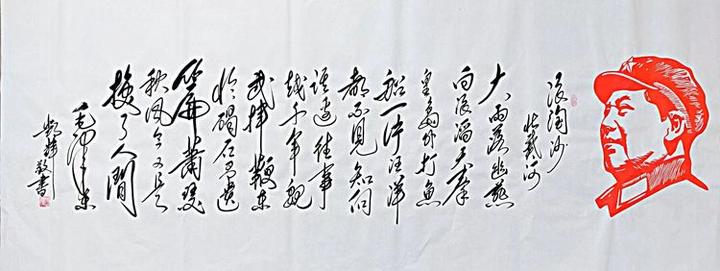 浪淘沙
北戴河
大雨落幽燕
白浪滔天秦
皇岛外打鱼
船一片汪洋
都不见知向
谁边往事
越千年魏
武挥鞭东
临碣石有遗
篇萧瑟
秋风今又是
换了人间
毛泽东
敬书